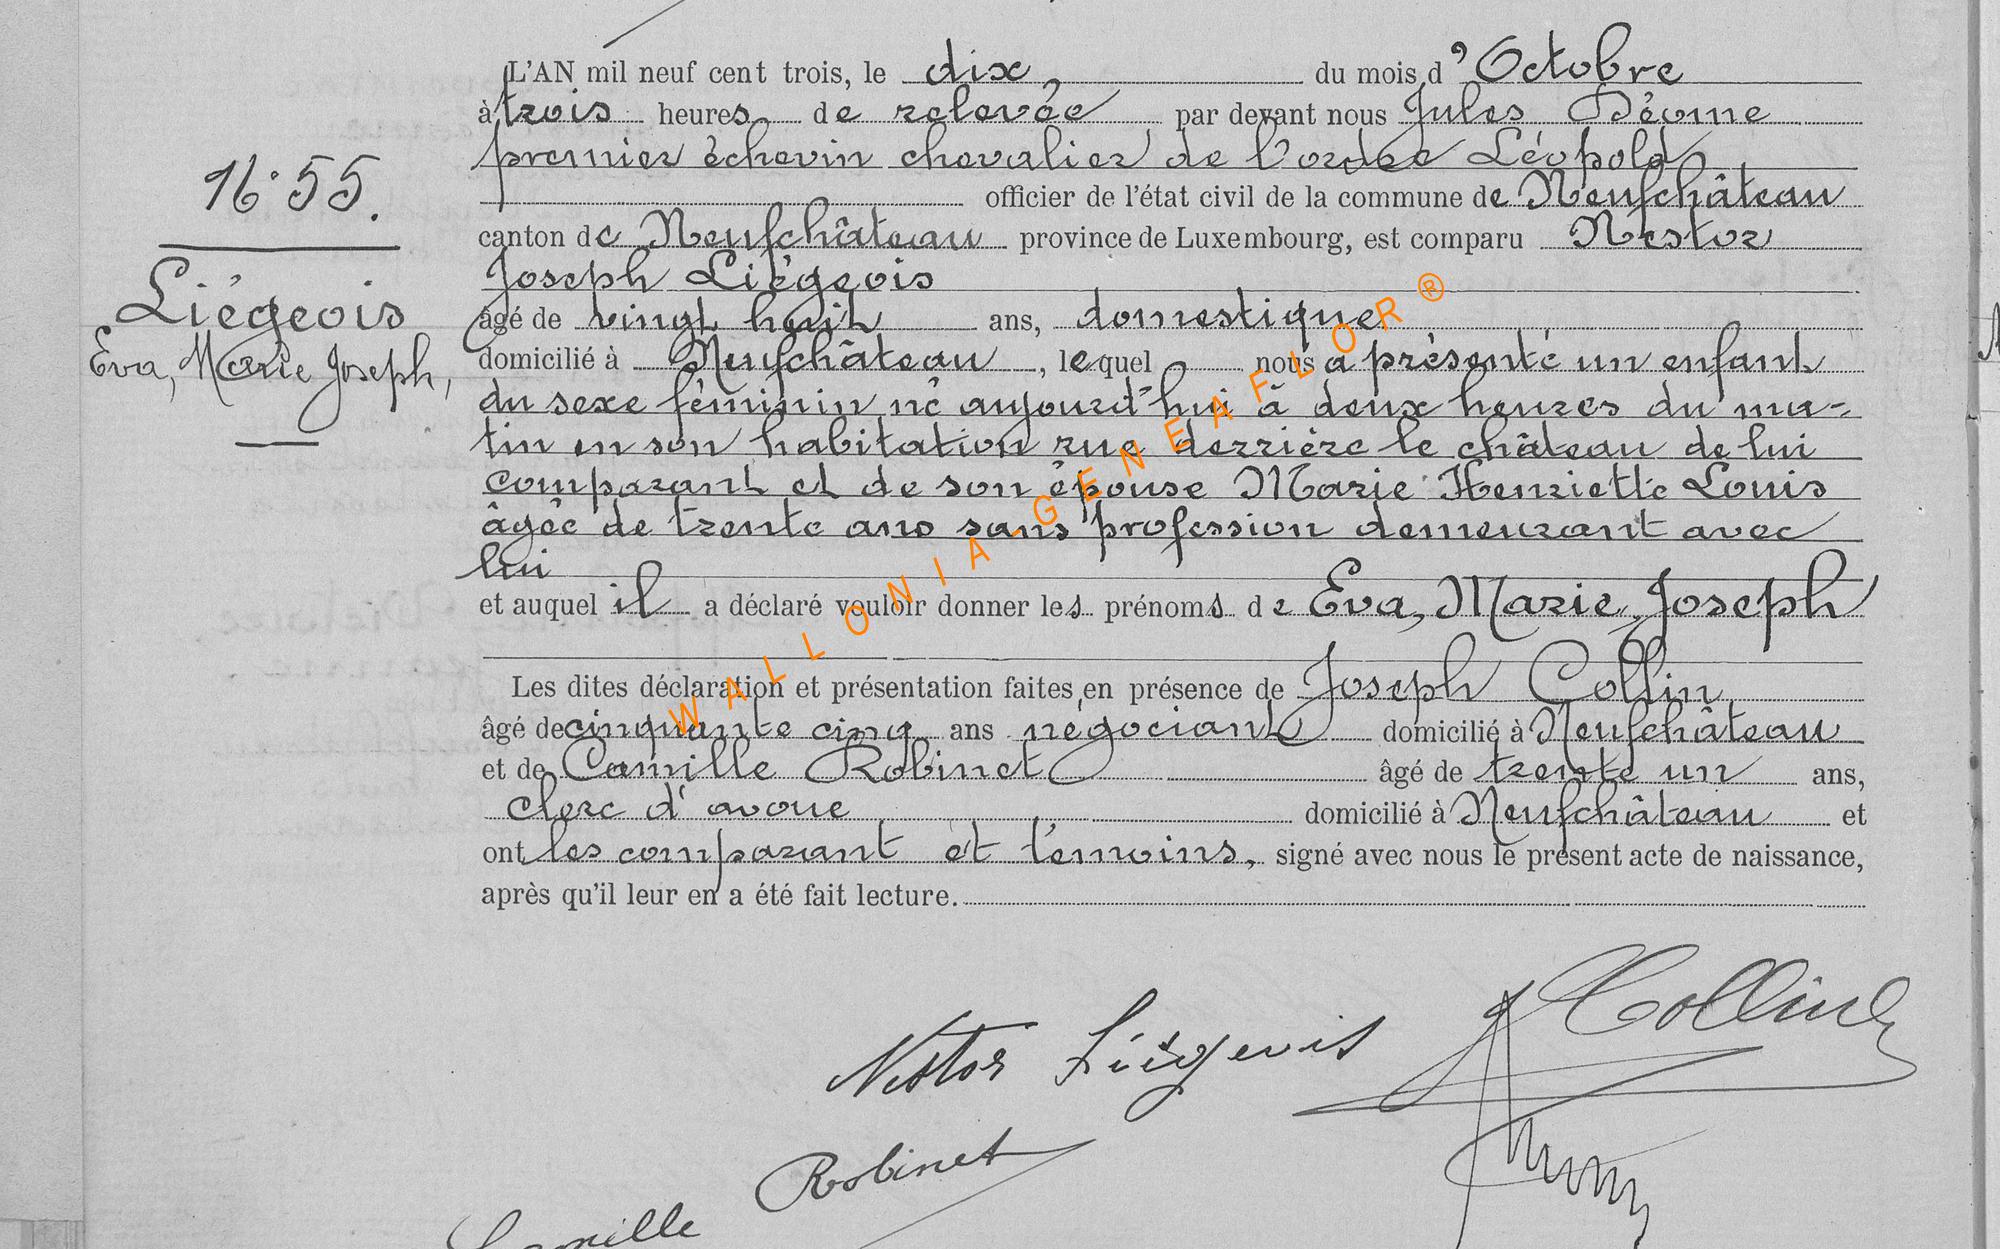 L'AN mil neuf cent trois, le dix, du mois d'Octobre
à trois heures de relevée par devant nous Jules
premier échevin chevalier de l'ordre Léopold
officier de l'état civil de la commune de Neufchâteau
canton de Neufchâteau province de Luxembourg, est comparu Nestor
Joseph Liégeois
âgé de vingt huit ans, domestique
domicilié à Neufchâteau, lequel nous a présenté un enfant
du sexe féminin né aujourd'hui à deux heures du ma-
tin en son habitation rue derrière le château de lui
comparant et de son épouse Marie Henriette Louis
âgée de trente ans sans profession demeurant avec
lui
et auquel il a déclaré vouloir donner les prénoms de Eva, Marie, Joseph
Les dites déclaration et présentation faites en présence de Joseph Collin
âgé de cinquante cinq ans négociant domicilié à Neufchâteau
et de Camille Robinet âgé de trente un ans,
clerc d'avoue domicilié à Neufchâteau et
ont les comparant et témoins, signé avec nous le présent acte de naissance,
après qu'il leur en a été fait lecture.
N° 55.
Liégeois
Eva, Marie Joseph,
WALLONIA-GENEAFLOR ®
Collin
Nestor Liégeois
Robinet
Camille